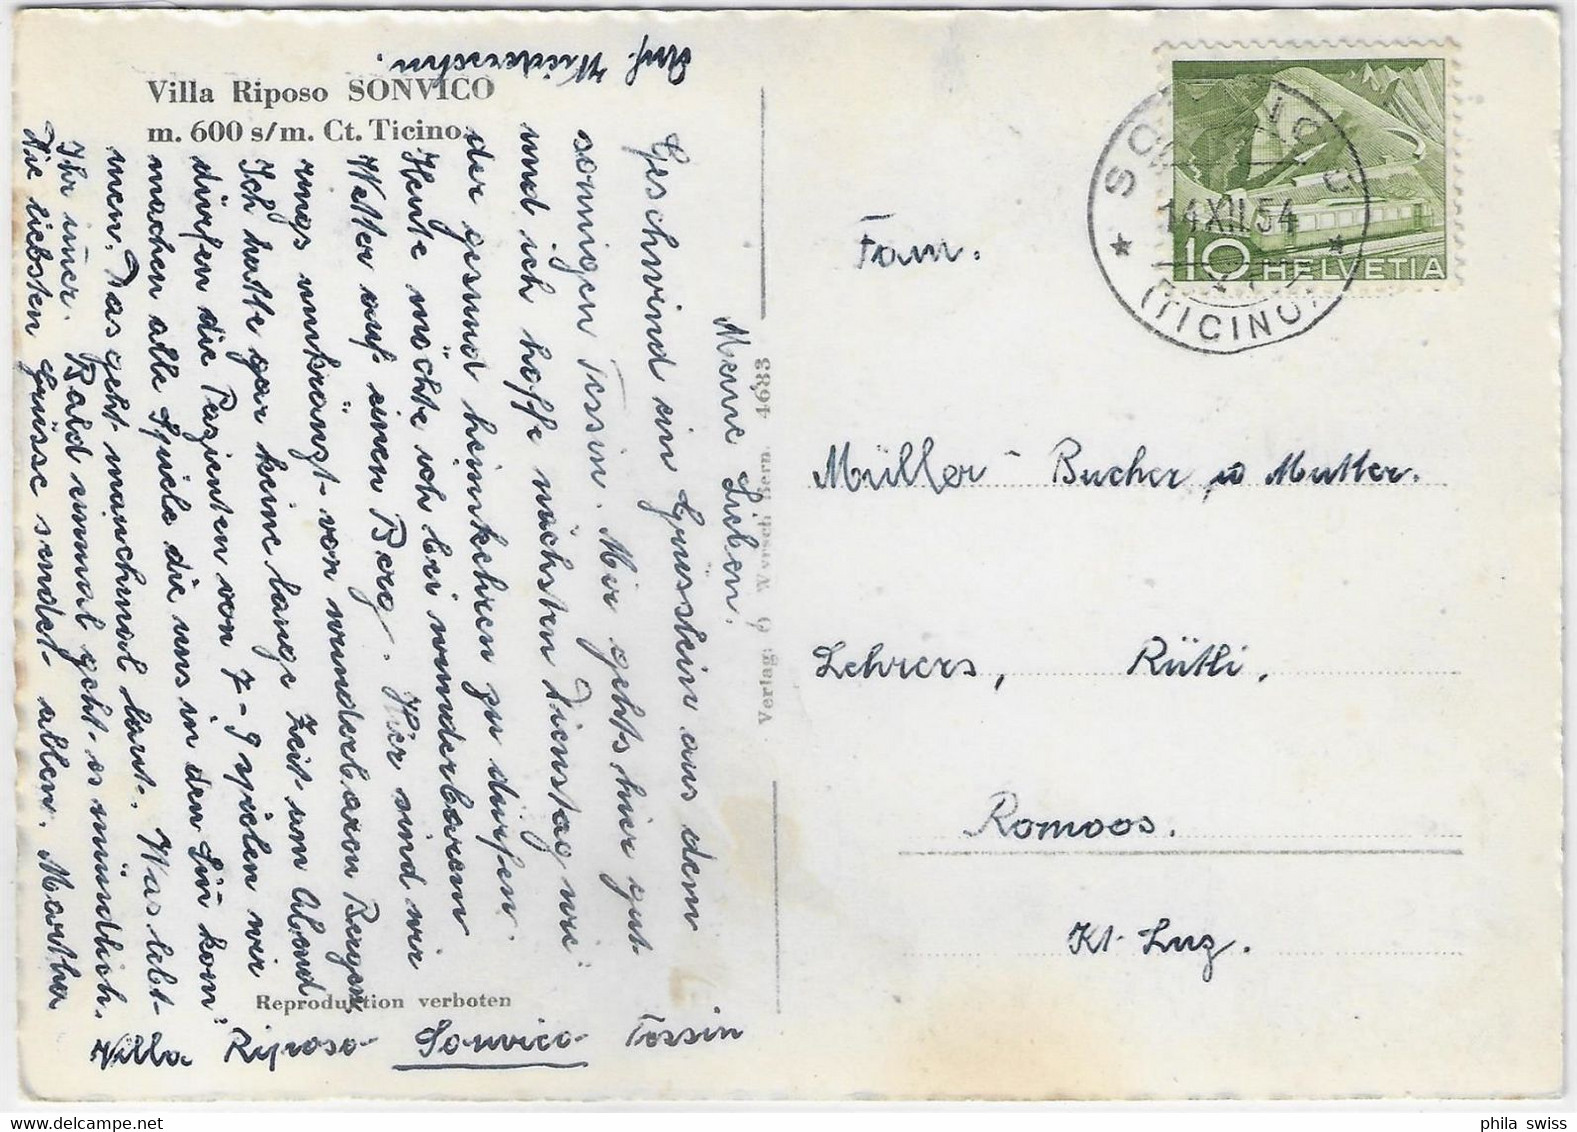 Villa Riposo SONVICO
m. 600 s/m. Ct. Ticino.
Meine Lieben.
Geschwind ein Grüsslein aus dem
sonnigen Tessin. Mir gehts hier gut
und ich hoffe nächsten Dienstag wie:
der gesund heimkehren zu dürfen.
Heute möchte ich bei wunderbarem
Wetter auf einen Berg. Hier sind wir
rings umkränzt von wunderbaren Bergen
Ich hatte gar keine lange Zeit um Abend
dürfen die Pazienten von 7-9 spielen wir
machen alle Spiele die uns in den Sin kom:
men. Das geht manchmal laut. Was lebt
Ihr imer. Bald einmal geht es mündlich.
Die liebsten Grüsse sendet allen. Martha
Auf Wiedersehn.
Villa Riposo Sonvico Tessin
Reproduktion verboten
Verlag: Wyrsch Bern. 4633
Fam.
Müller - Bucher u Mutter.
Lehrers, Rütli.
Romoos.
Kt. Luz.
10 HELVETIA
SONVICO
14 XII. 54
(TICINO)
phila swiss